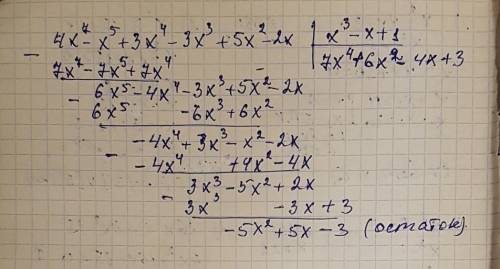 4x⁷ - x⁵ + 3x⁴ - 3x³ + 5x² - 2x | x³ - x + 1
7x⁷ - 7x⁵ + 7x⁴ 7x⁴ + 6x² - 4x + 3
- 6x⁵ - 4x⁴ - 3x³ + 5x² - 2x
6x⁵ - 6x³ + 6x²
- -4x⁴ + 3x³ - x² - 2x
-4x⁴ + 4x² - 4x
- 3x³ - 5x² + 2x
3x³ - 3x + 3
-5x² + 5x - 3 (остаток)